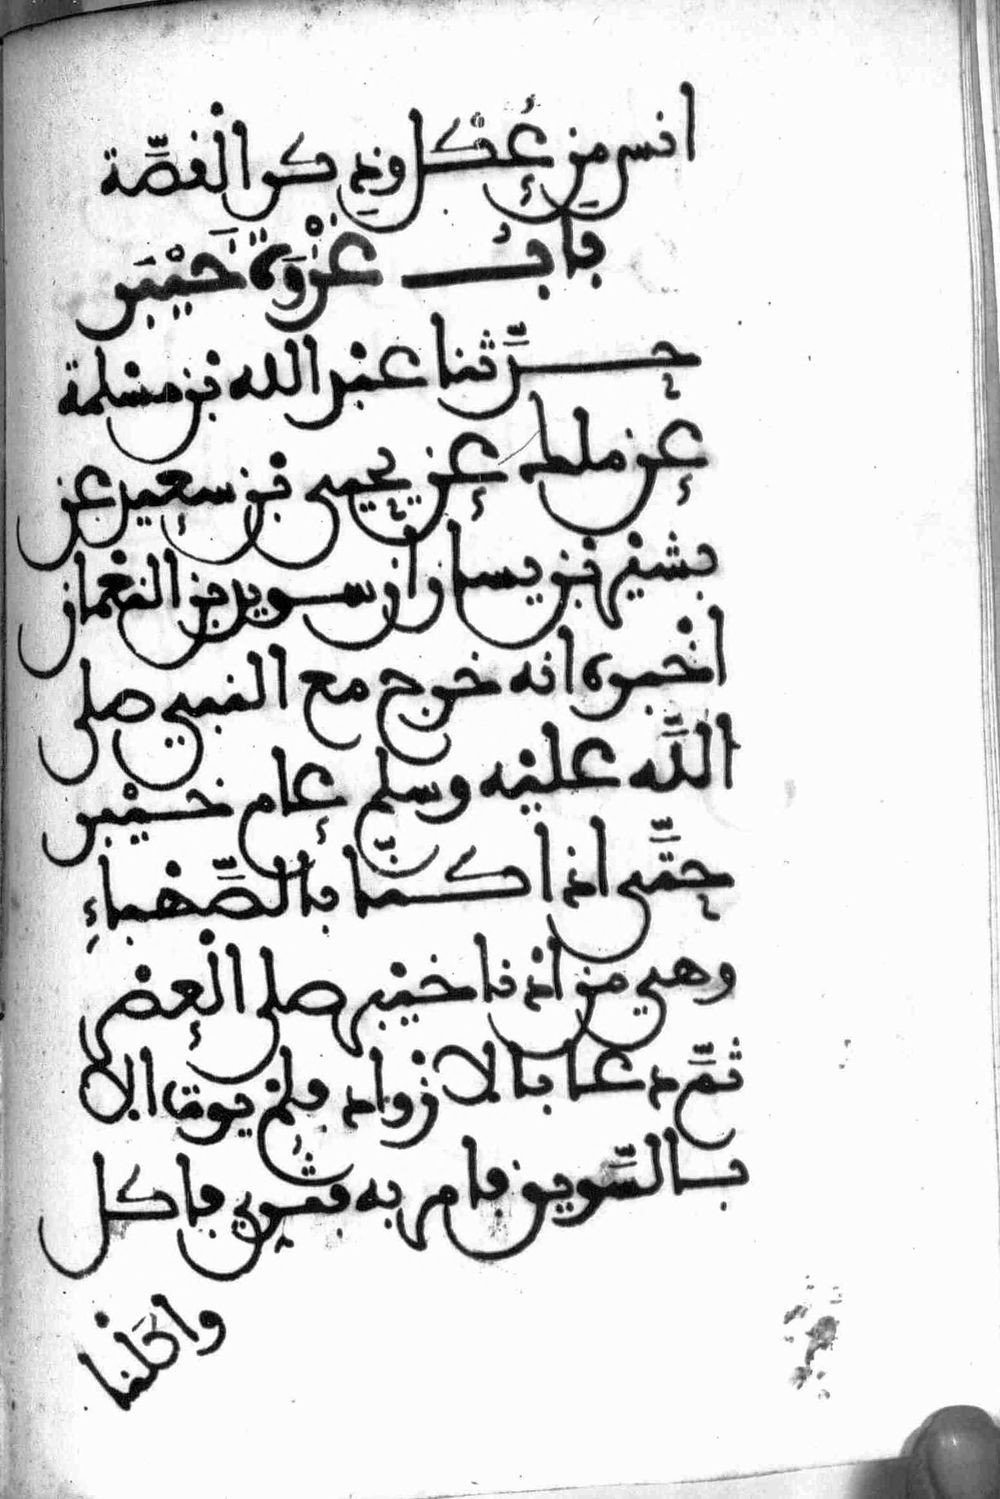 انس من عُكل وذكر الْقصّة
بابُ غزْوَة خَيْبَر
حدّثنا عبْد الله بْن مسْلمة
عن ملك عن يحيى بْن سعيد عن
بشيْر بْن يسار ان سويد بن النعْمان
اخْبره انه خرج مع النبي صلى
اللّه عليْه وسلم عام خيْبر
حتّى اذا كنّا بالصّهْباءِ
وهي من ادْنا خيْبر صلى الْعصْر
ثمّ دعا بالازواد فلمْ يوت الا
بالسّويق فامر به فثّري فاكل
واكلْنا